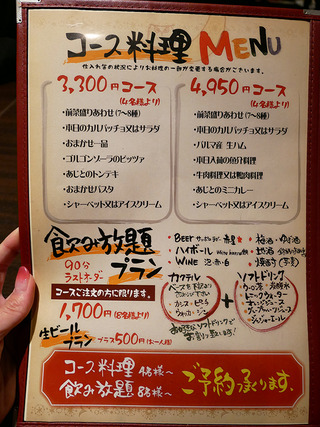 コース料理 MENU
仕入れ等の状況によりお料理の一部が変更する場合がございます。
3,300円コース
(4名様より)
・前菜盛りあわせ(7〜8種)
・本日のカルパッチョ又はサラダ
・おまかせ一品
・ゴルゴンゾーラのピッツァ
・あじとのトンテキ
・おまかせパスタ
・シャーベット又はアイスクリーム
4,950円コース
(4名様より)
・前菜盛りあわせ(7〜8種)
・本日のカルパッチョ又はサラダ
・パルマ産 生ハム
・本日入荷の魚介料理
・牛肉料理又は鴨肉料理
・あじとのミニカレー
・シャーベット又はアイスクリーム
飲み放題
プラン
90分
ラストオーダー
コースご注文の方に限ります。
1,700円(8名様より)
生ビール
プラン プラス500円(お一人様)
・BEER
・ハイボール
・WINE 泡・赤・白
・梅酒・ゆず酒
カクテル
ベースを下記より
カシス・ピーチ
ウォッカ・ジン
+
ソフトドリンク
ウーロン茶・
オレンジジュース
ジンジャーエール
お好きなソフトドリンクで
お割り致します!
コース料理 4名様〜
飲み放題 8名様〜
ご予約承ります。